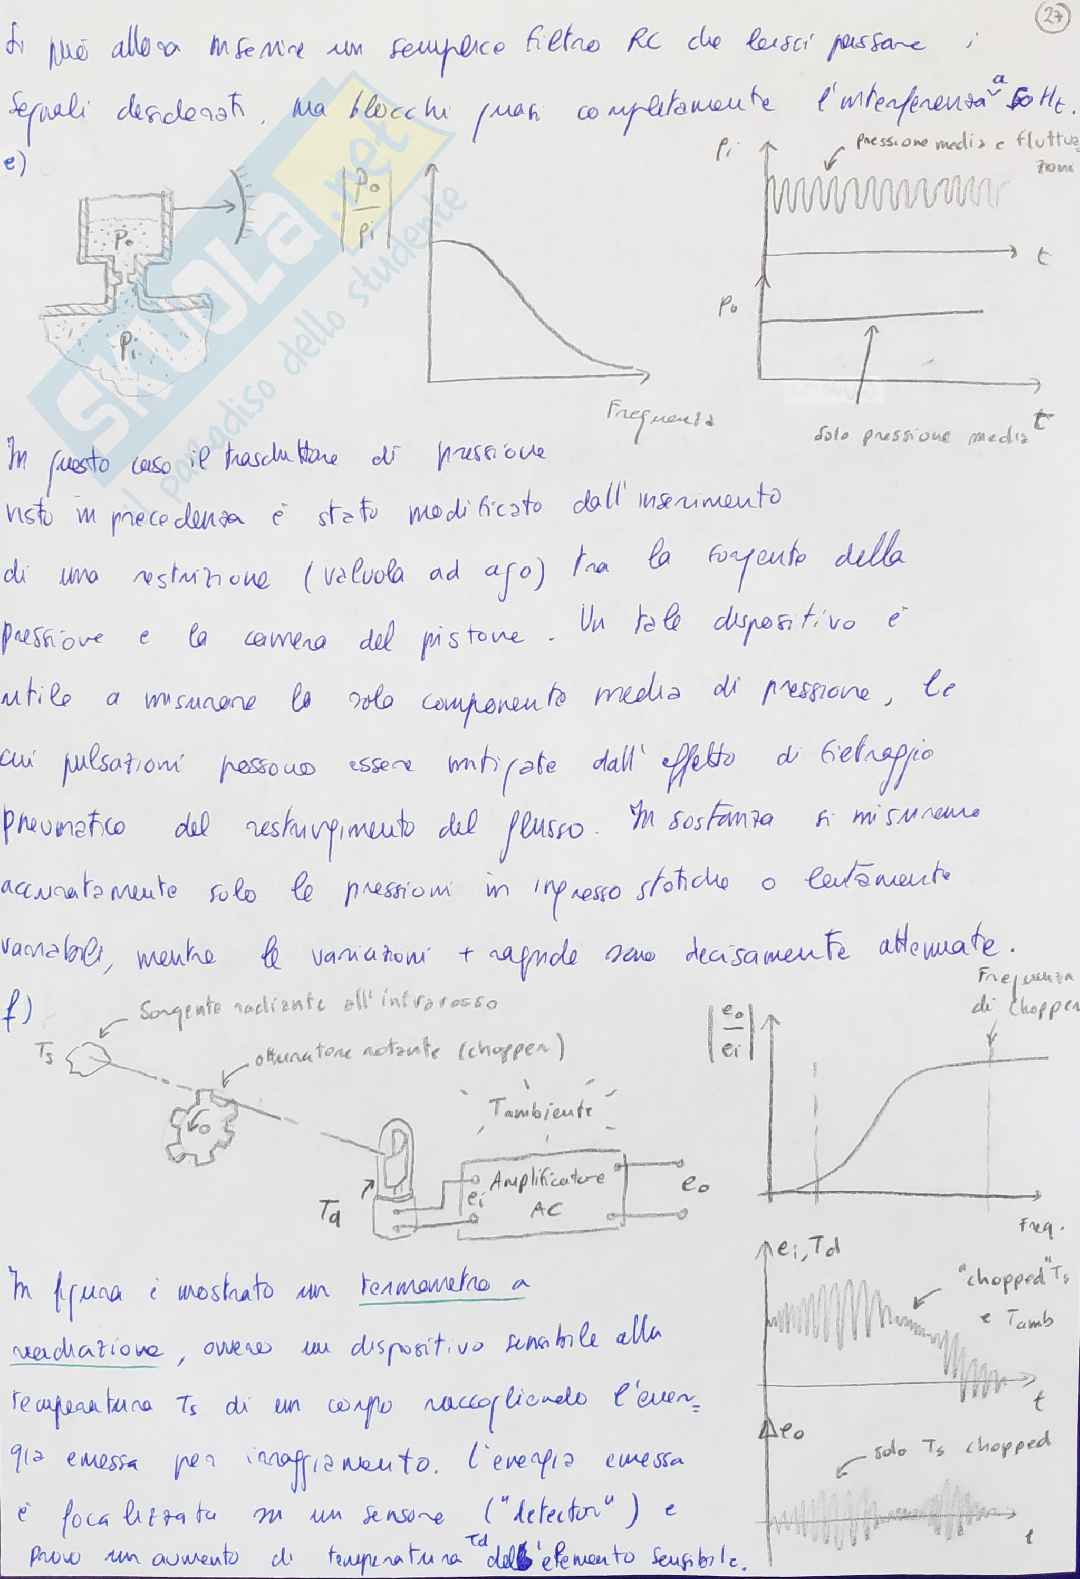 27
Si può allora inserire un semplice filtro RC che lasci passare i
segnali desiderati, ma blocchi quasi completamente l'interferenza a 50 Hz.
e)
Po
Pi
|Po/Pi|
Frequenza
Pi
pressione media e fluttuazioni
t
Po
t
solo pressione media
In questo caso il trasduttore di pressione
visto in precedenza è stato modificato dall'inserimento
di una restrizione (valvola ad ago) tra la sorgente della
pressione e la camera del pistone. Un tale dispositivo è
utile a misurare la sola componente media di pressione, le
cui pulsazioni possono essere mitigate dall'effetto di filtraggio
pneumatico del restringimento del flusso. In sostanza si misurano
accuratamente solo le pressioni in ingresso statiche o lentamente
variabili, mentre le variazioni + rapide sono decisamente attenuate.
f)
Sorgente radiante all'infrarosso
Ts
otturatore rotante (chopper)
Tambiente
Td
ei
Amplificatore
AC
eo
|eo/ei|
Frequenza
di chopper
Freq.
ei, Td
"chopped" Ts
e Tamb
t
eo
solo Ts chopped
t
In figura è mostrato un termometro a
radiazione, ovvero un dispositivo sensibile alla
temperatura Ts di un corpo raccogliendo l'ener=
gia emessa per irraggiamento. L'energia emessa
è focalizzata su un sensore ("detector") e
provo un aumento di temperatura Td dell'elemento sensibile.
SKUOLA.net
il paradiso dello studente